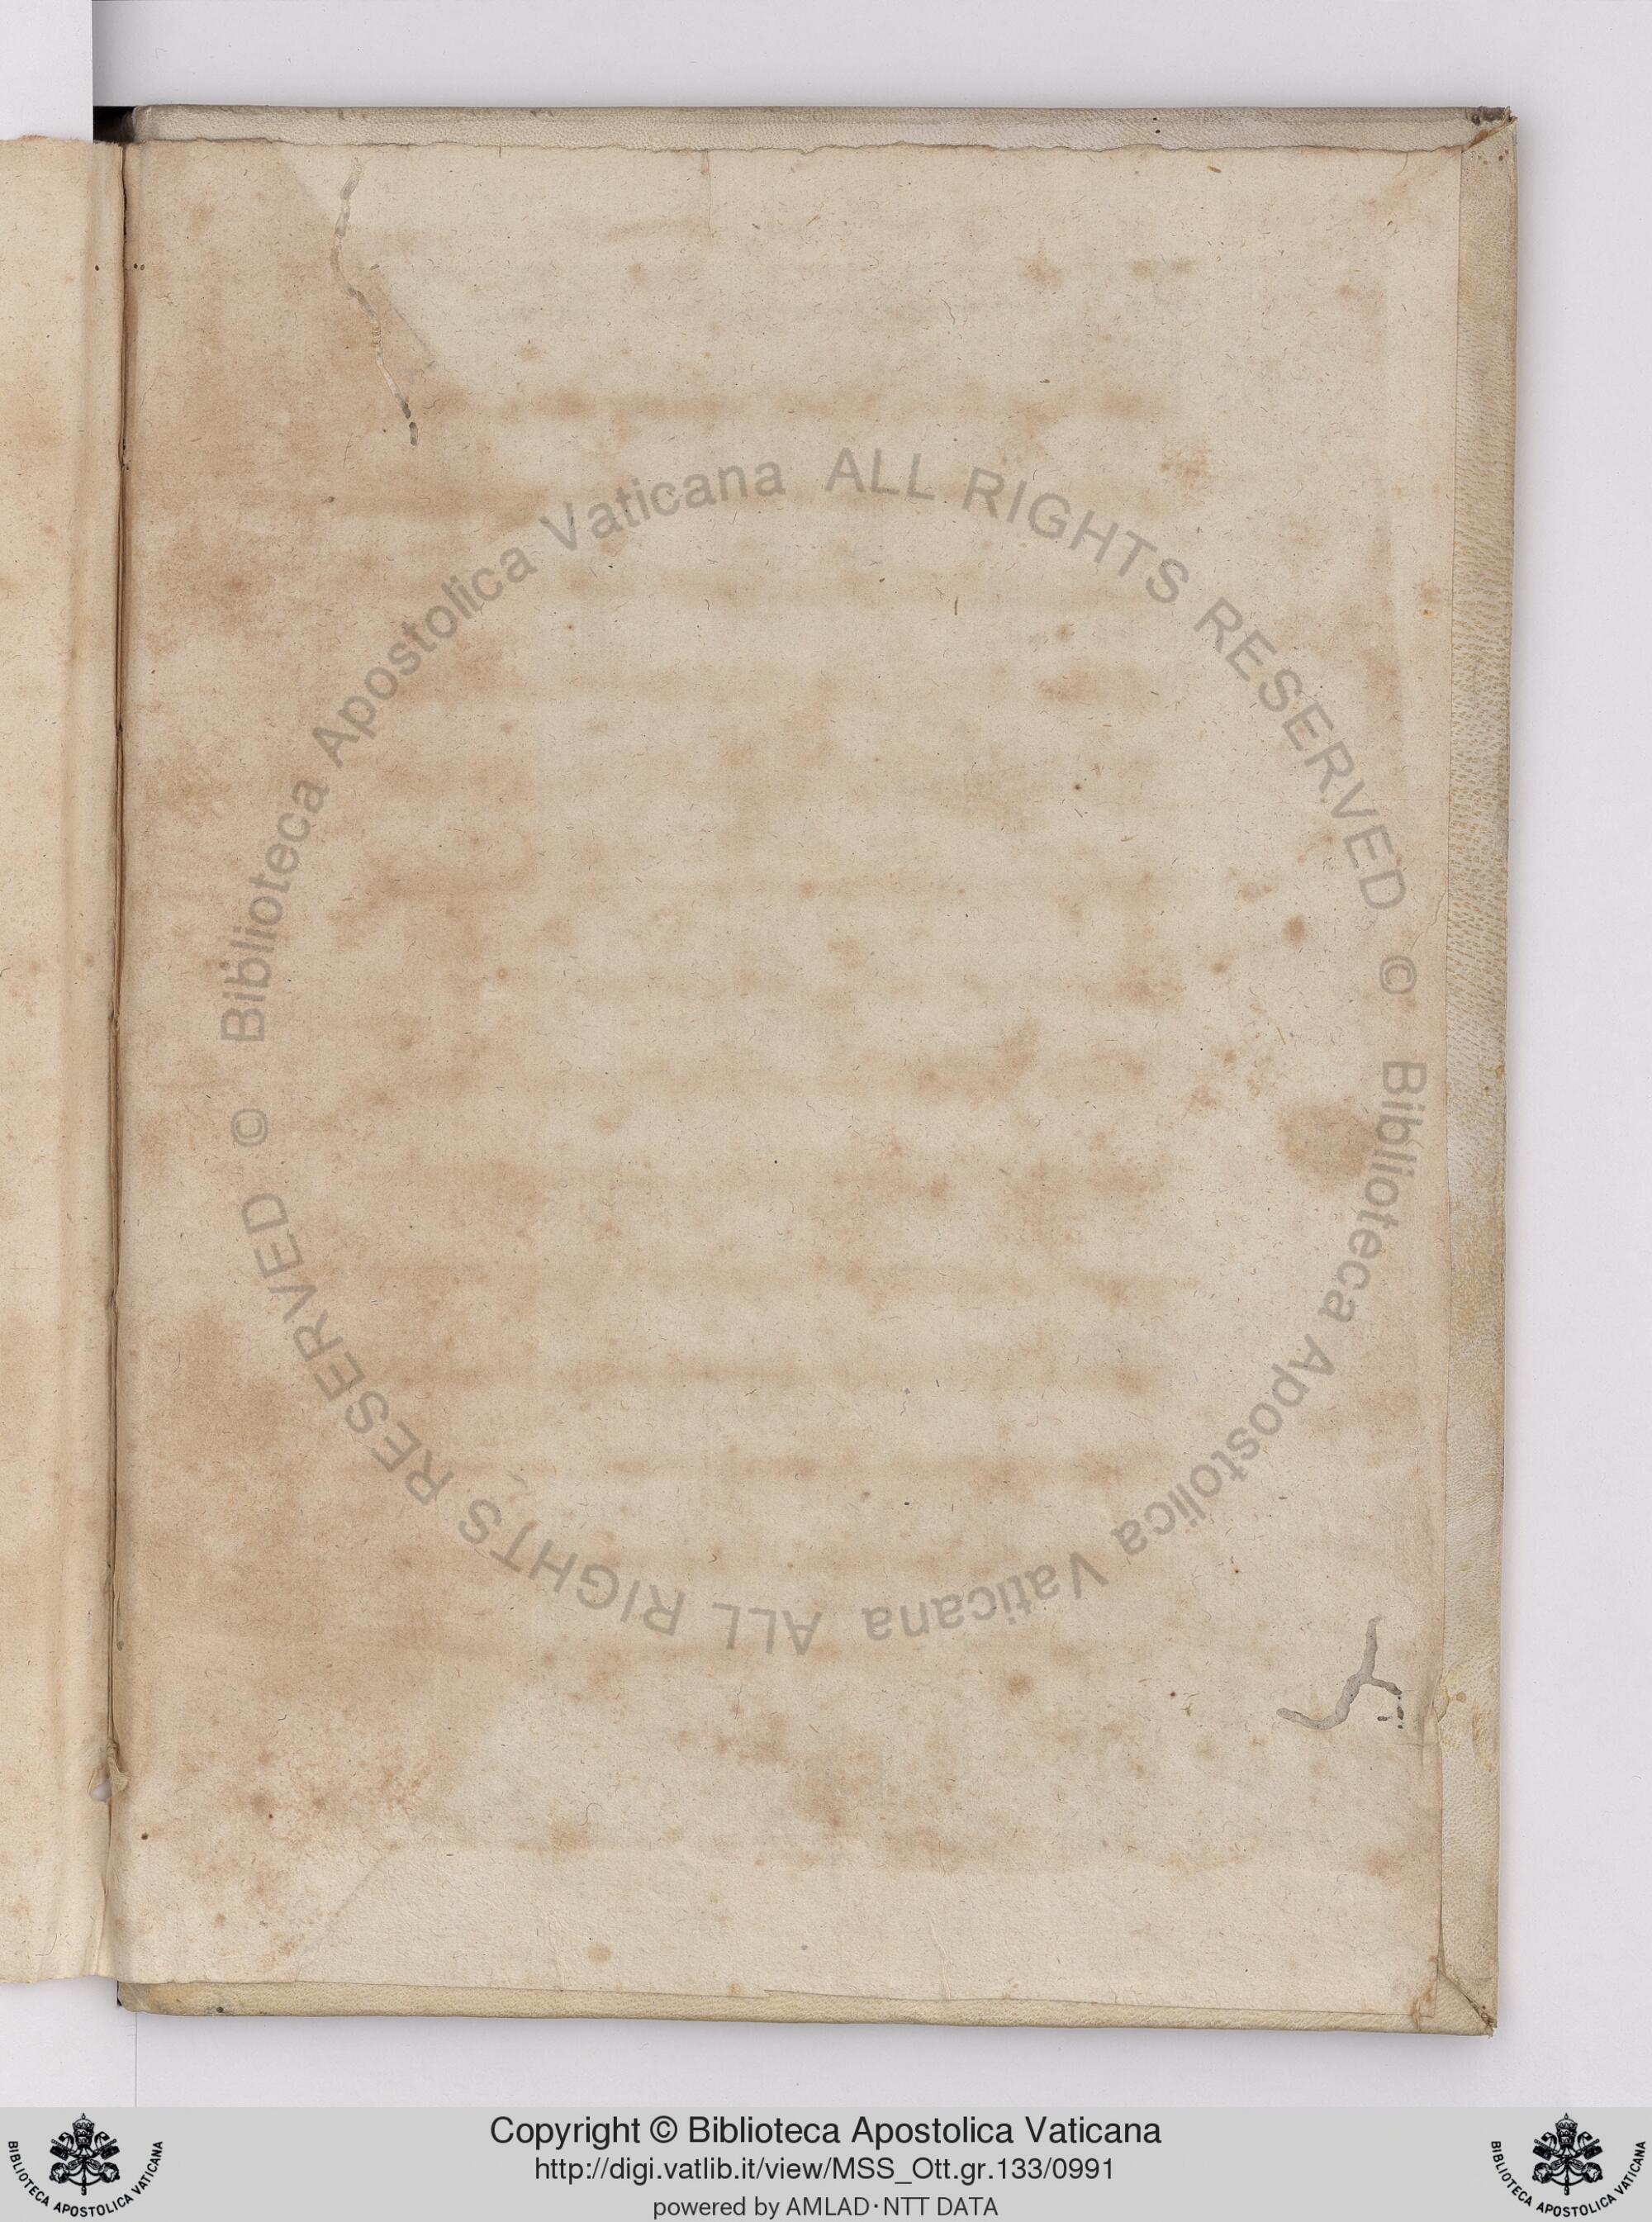 © Biblioteca Apostolica Vaticana ALL RIGHTS RESERVED
© Biblioteca Apostolica Vaticana ALL RIGHTS RESERVED
Copyright © Biblioteca Apostolica Vaticana
http://digi.vatlib.it/view/MSS_Ott.gr.133/0991
powered by AMLAD·NTT DATA
BIBLIOTECA APOSTOLICA VATICANA
BIBLIOTECA APOSTOLICA VATICANA